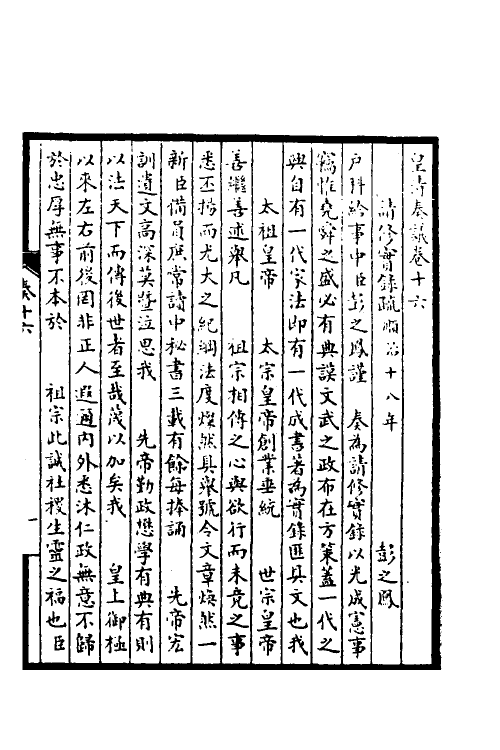 皇清奏議卷十六
請修實錄疏 順治十八年 彭之鳳
戶科給事中臣彭之鳳謹 奏為請修實錄以光成憲事
竊惟堯舜之盛必有典謨文武之政布在方策蓋一代之
興自有一代家法即有一代成書著為實錄匪具文也我
太祖皇帝 太宗皇帝創業垂統 世宗皇帝
善繼善述舉凡 祖宗相傳之心與欲行而未竟之事
悉丕揚而光大之紀綱法度燦然具舉號令文章煥然一
新臣備員庶常讀中秘書三載有餘每捧誦 先帝宏
訓遺文高深莫罄泣思我 先帝勤政懋學有典有則
以法天下而傳後世者至哉蔑以加矣我 皇上御極
以來左右前後罔非正人遐邇內外悉沐仁政無意不歸
於忠厚無事不本於 祖宗此誠社稷生靈之福也臣
奏十六
一